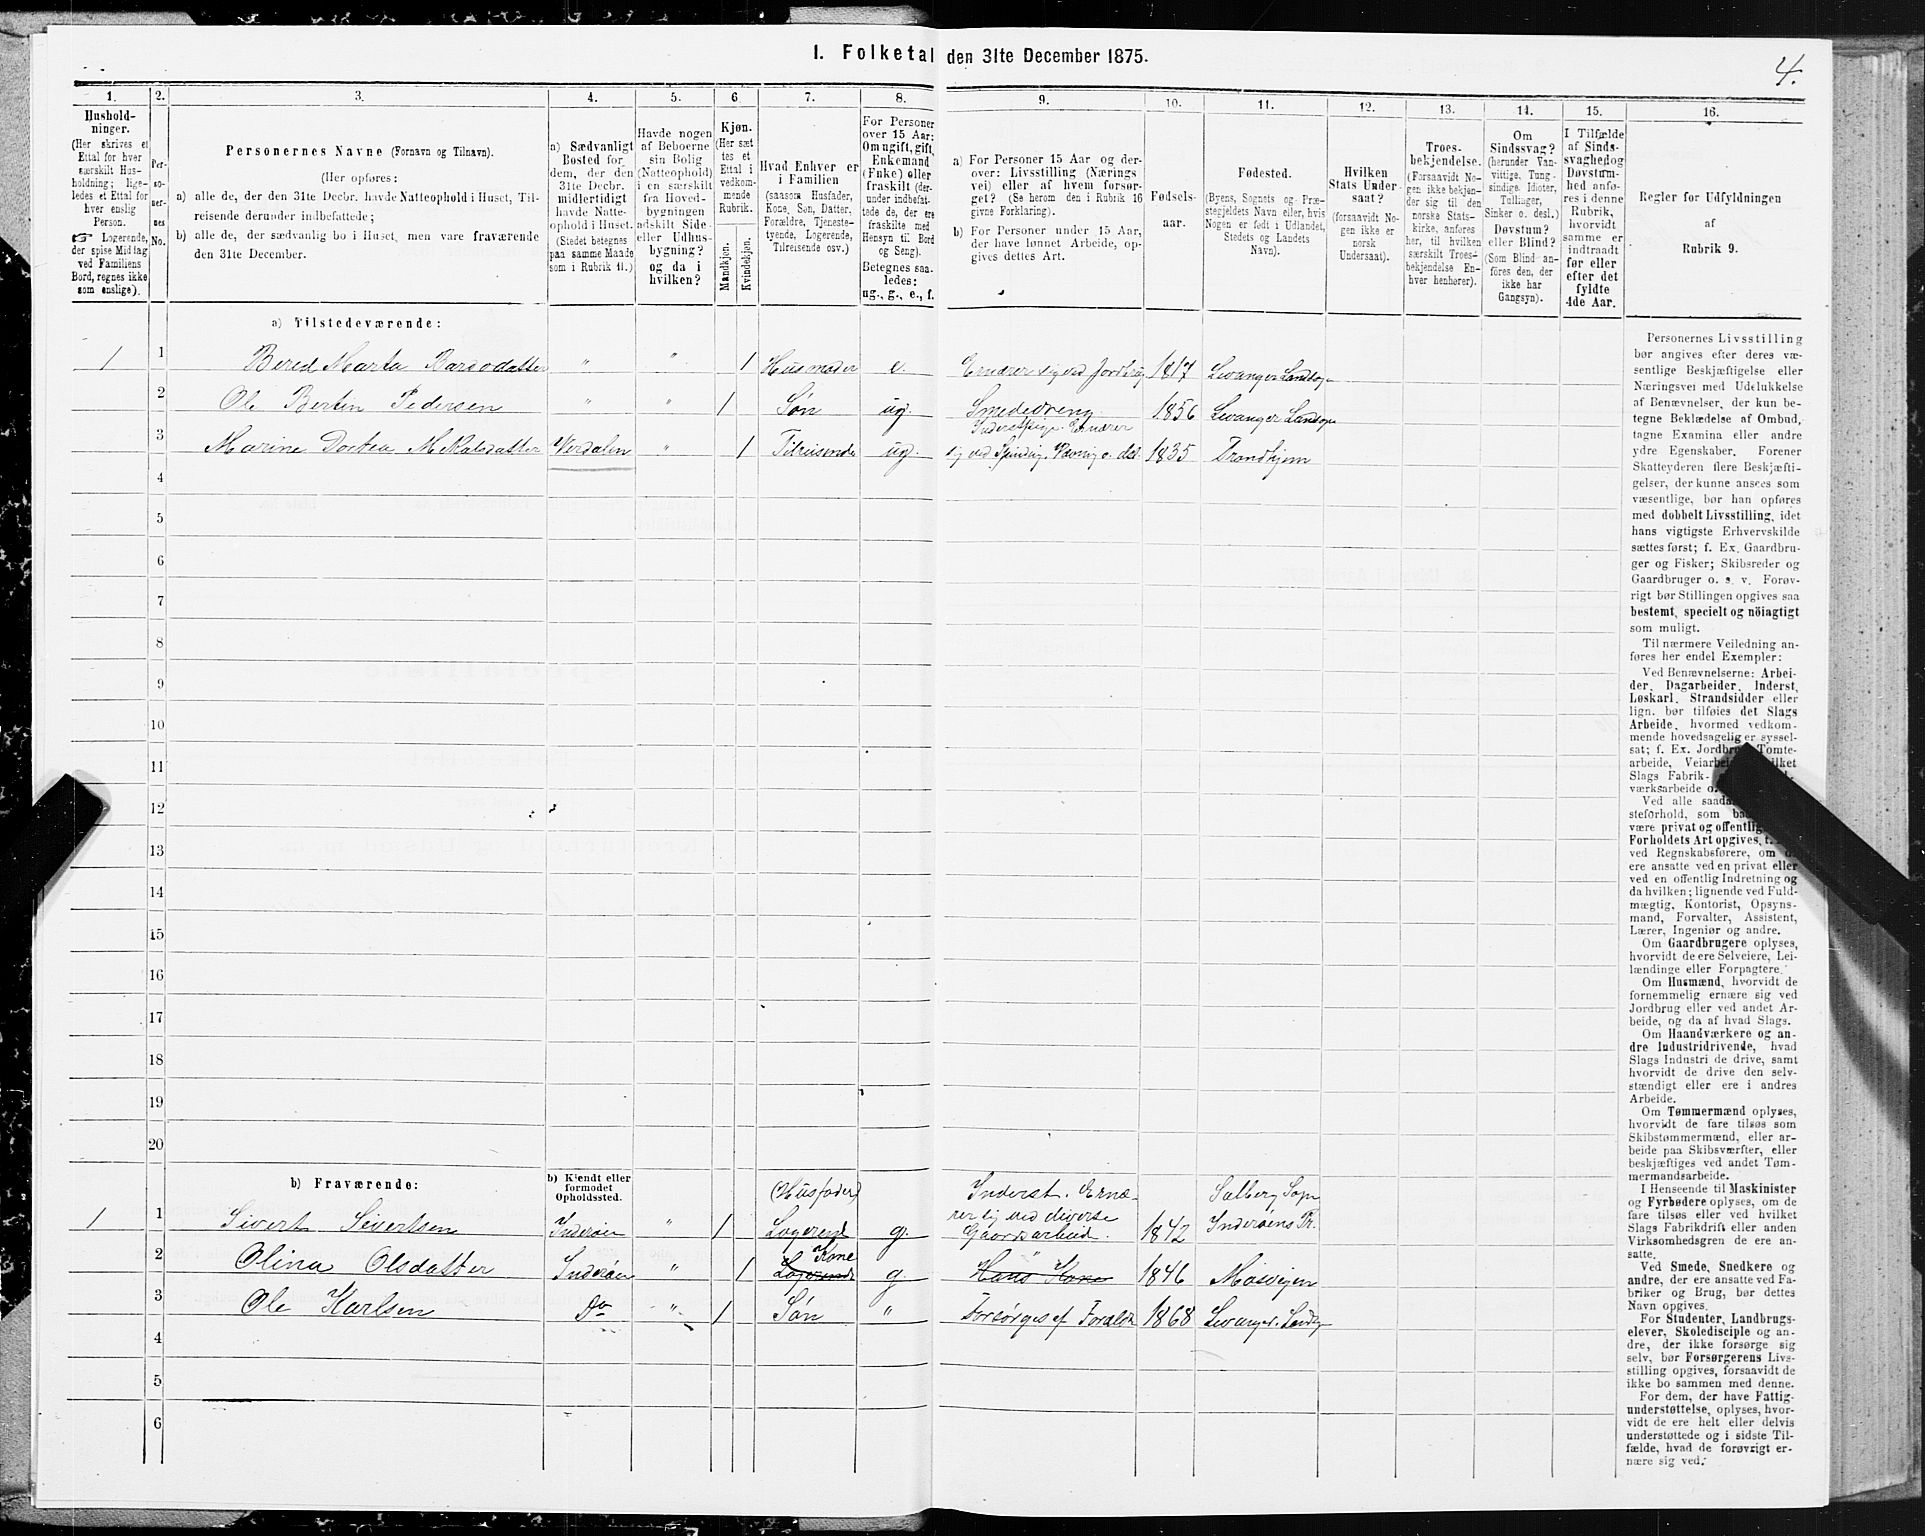 I. Folketal den 31te December 1875.
4.
1.
Hushold-
ninger.
(Her skrives et
Ettal for hver
særskilt Hus-
holdning; lige-
ledes et Ettal for
hver enslig
Person.
☞ Logerende,
der spise Middag
ved Familiens
Bord, regnes ikke
som enslige).
2.
Per-
so-
ner-
nes
No.
3.
Personernes Navne (Fornavn og Tilnavn).
(Her opføres:
a) alle de, der den 31te Decbr. havde Natteophold i Huset, Til-
reisende derunder indbefattede;
b) alle de, der sædvanlig bo i Huset, men vare fraværende
den 31te December.
4.
a) Sædvanligt
Bosted for
dem, der den
31te Decbr.
midlertidigt
havde Natte-
ophold i Huset.
(Stedet betegnes
paa samme Maade
som i Rubrik 11.)
5.
Havde nogen
af Beboerne
sin Bolig
(Natteophold)
i en særskilt
fra Hoved-
bygningen
adskilt Side-
eller Udhus-
bygning?
og da i
hvilken?
6
Kjøn.
(Her sæt-
tes et
Ettal i
vedkom-
mende
Rubrik.
Mandkjøn.
Kvindekjøn.
7.
Hvad Enhver er
i Familien
(saasom Husfader,
Kone, Søn, Datter,
Forældre, Tjeneste-
tyende, Logerende,
Tilreisende osv.)
8.
For Personer
over 15 Aar:
Om ugift, gift,
Enkemand
(Enke) eller
fraskilt (der-
under indbefat-
tede de, der ere
fraskilte med
Hensyn til Bord
og Seng).
Betegnes saa-
ledes:
ug., g., e., f.
9.
a) For Personer 15 Aar og der-
over: Livsstilling (Nærings
vei) eller af hvem forsør-
get? (Se herom den i Rubrik 16
givne Forklaring).
b) For Personer under 15 Aar,
der have lønnet Arbeide, op-
gives dettes Art.
10.
Fødsels-
aar.
11.
Fødested.
(Byens, Sognets og Præ-
stegjeldets Navn eller, hvis
Nogen er født i Udlandet,
Stedets og Landets
Navn).
12.
Hvilken
Stats Under-
saat?
(forsaavidt No-
gen ikke er
norsk
Undersaat).
13.
Troes-
bekjendelse.
(Forsaavidt No-
gen ikke bekjen-
der sig til den
norske Stats-
kirke, anføres
her, til hvilken
særskilt Troes-
bekjendelse En-
hver henhører).
14.
Om
Sindssvag?
(herunder Van-
vittige, Tung-
sindige, Idioter,
Tullinger,
Sinker o. desl.)
Døvstum?
eller Blind?
(Som Blind an-
føres den, der
ikke har
Gangsyn).
15.
I Tilfælde
af Sinds-
svaghed og
Døvstum-
hed anfø-
res i denne
Rubrik,
hvorvidt
samme er
indtraadt
før eller
efter det
fyldte
4de Aar.
16.
Regler for Udfyldningen
af
Rubrik 9.
a) Tilstedeværende:
1 1 Bered Marta Bardodatter " " 1 Husmoder e. Ernærer sig ved Jordbrug 1817 Levanger Landsogn
2 Ole Bertin Pedersen " " 1 Søn ug. Smededreng 1856 Levanger Landsogn
Inderstpige. Ernærer
3 Marine Dortea Mikalsdatter Værdalen " 1 Tilreisende ug. sig ved Spinding, Vævning o. desl. 1835 Trondhjem
4
5
6
7
8
9
10
11
12
13
14
15
16
17
18
19
20
b) Fraværende:
b) Kjendt eller
formodet
Opholdssted.
(Husfader) Inderst. Ernæ- Salberg Sogn
1 1 Sivert Sivertsen Inderøen " 1 Logerend g. rer sig ved diverse Gaardsarbeid. 1842 Inderøens Pr.
Kone
2 Olina Olsdatter Inderøen " 1 Logerende g. Hans Kone 1846 Mosvigen
3 Ole Karlsen Do " 1 Søn " Forsørges af Foræld. 1868 Levanger Landsg
4
5
6
Personernes Livsstilling
bør angives efter deres væ-
sentlige Beskjæftigelse eller
Næringsvei med Udelukkelse
af Benævnelser, der kun be-
tegne Beklædelse af Ombud,
tagne Examina eller andre
ydre Egenskaber. Forener
Skatteyderen flere Beskjæfti-
gelser, der kunne ansees som
væsentlige, bør han opføres
med dobbelt Livsstilling, idet
hans vigtigste Erhvervskilde
sættes først; f. Ex. Gaardbru-
ger og Fisker; Skibsreder og
Gaardbruger o. s. v. Forøv-
rigt bør Stillingen opgives saa
bestemt, specielt og nöiagtigt
som muligt.
Til nærmere Veiledning an-
føres her endel Exempler:
Ved Benævnelserne: Arbei-
der, Dagarbeider, Inderst,
Løskarl, Strandsidder eller
lign. bør tilføies det Slags
Arbeide, hvormed vedkom-
mende hovedsagelig er syssel-
sat; f. Ex. Jordbrug, Tomte-
arbeide, Veiarbei hvilket
Slags Fabrik-
værksarbeide o.
Ved alle saada
steforhold, som
være privat og offentlig
Forholdets Art opgives, t.
ved Regnskabsførere, om
ere ansatte ved en privat eller
ved en offentlig Indretning og
da hvilken; lignende ved Fuld-
mægtig, Kontorist, Opsyns-
mand, Forvalter, Assistent,
Lærer, Ingeniør og andre.
Om Gaardbrugere oplyses,
hvorvidt de ere Selveiere, Lei-
lændinge eller Forpagtere.
Om Husmænd, hvorvidt de
fornemmelig ernære sig ved
Jordbrug eller ved andet Ar-
beide, og da af hvad Slags.
Om Haandværkere og an-
dre Industridrivende, hvad
Slags Industri de drive, samt
hvorvidt de drive den selv-
stændigt eller ere i andres
Arbeide.
Om Tømmermænd oplyses,
hvorvidt de fare tilsøs som
Skibstømmermænd, eller ar-
beide paa Skibsværfter, eller
beskjæftiges ved andet Tøm-
mermandsarbeide.
I Henseende til Maskinister
og Fyrbødere oplyses, om de
fare tilsøs eller ved hvilket
Slags Fabrikdrift eller anden
Virksomhedsgren de ere an-
satte.
Ved Smede, Snedkere og
andre, der ere ansatte ved Fa-
briker og Brug, bør dettes
Navn opgives.
For Studenter, Landbrugs-
elever, Skoledisciple og an-
dre, der ikke forsørge sig
selv, bør Forsørgerens Livs-
stilling opgives, forsaavidt de
ikke bo sammen med denne.
For dem, der have Fattig-
understøttelse, oplyses, hvor-
vidt de ere helt eller delvis
understøttede og i sidste Til-
fælde, hvad de forøvrigt er-
nære sig ved.